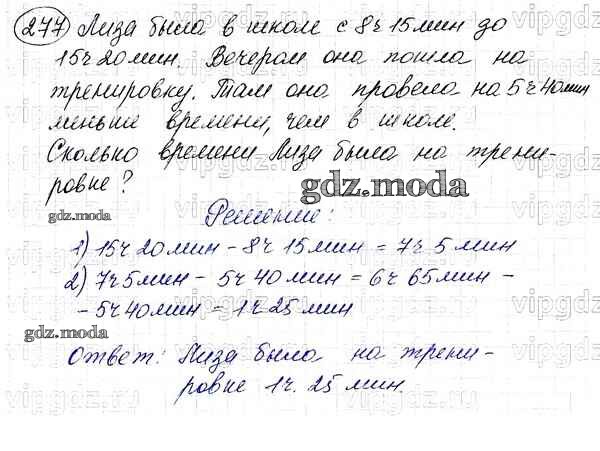 277) Лиза была в школе с 8ч 15мин до
15ч 20мин. Вечером она пошла на
тренировку. Там она провела на 5ч 40мин
меньше времени, чем в школе.
Сколько времени Лиза была на трени-
ровке?
gdz.moda
gdz.moda
Решение:
1) 15ч 20мин - 8ч 15мин = 7ч 5мин
2) 7ч 5мин - 5ч 40мин = 6ч 65мин -
- 5ч 40мин = 1ч 25мин
gdz.moda
Ответ: Лиза была на трени-
ровке 1ч. 25мин.